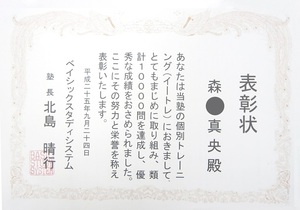 表彰状
森●真央殿
あなたは当塾の個別トレーニ
ング(イートレ)におきまして
とてもまじめに取り組み、類
計10000問を達成し、優
秀な成績をおさめられました。
ここにその努力と栄誉を称え
表彰いたします。
平成二十五年九月二十四日
ベイシックスタディシステム
塾長 北島晴行